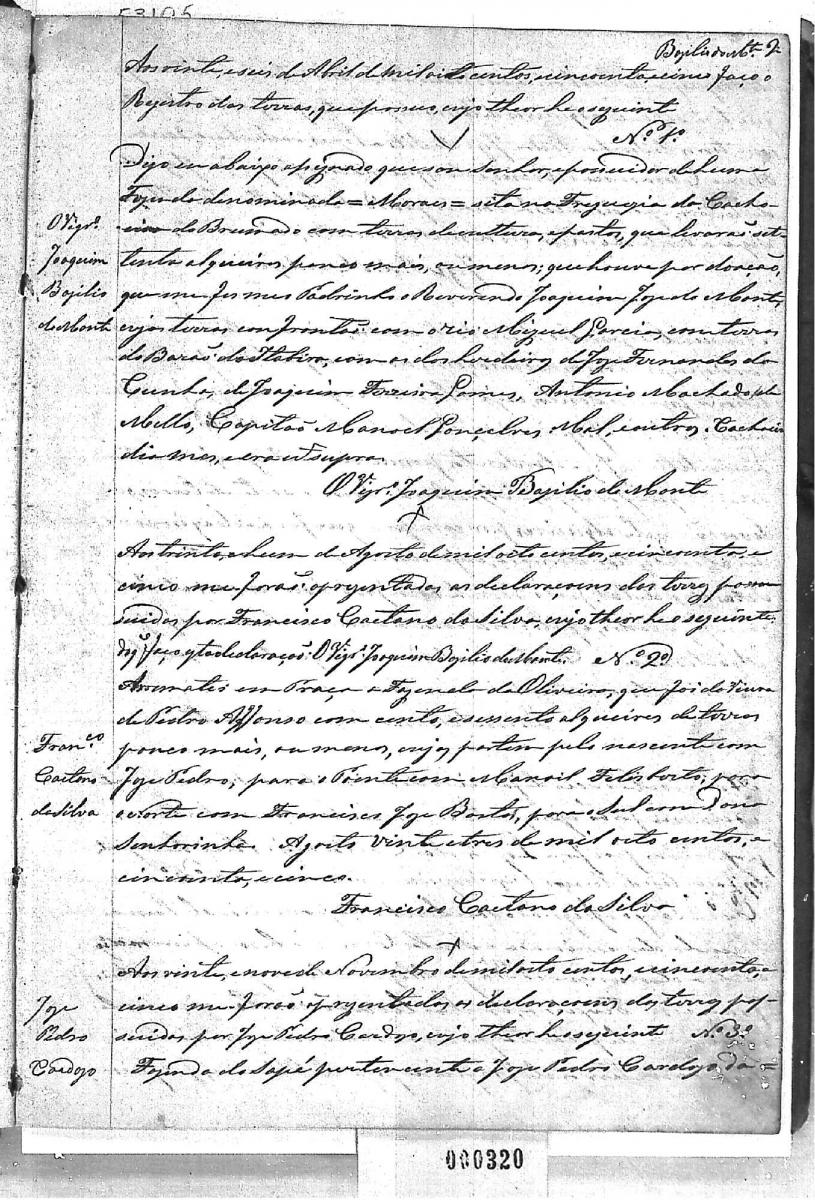 53105
Basilio do Mte. 2
Aos vinte, e seis de Abril de mil oito centos, e cincoenta, e cinco faço o
Registro das terras, que possuo, cujo theor he o seguinte
N.º 1.º
Digo eu abaixo assignado que sou senhor, e possuidor de huma
Fazenda denominada = Moraes = sita na Freguezia da Cacho-
eira do Brumado com terras de cultura, e pastos, que levaraõ set-
tenta alqueires pouco mais, ou menos; que houve por doaçaõ,
que me fes meu Padrinho o Reverendo Joaquim Jose do Monte,
cujas terras confrontaõ com o rio Miguel Garcia, com terras
do Baraõ do Itabira, com as dos herdeiros de Jose Fernandes da
Cunha, de Joaquim Ferreira Gomes, Antonio Machado de
Mello, Capitaõ Manoel Gonçalves Mol, e outros. Cachoeira
dia mes, e era ut supra.
O Vigr.º Joaquim Basilio do Monte
O Vigr.º
Joaquim
Basilio
do Monte
Aos trinta, e hum de Agosto de mil oito centos, e cincoenta, e
cinco me foraõ aprezentadas as declaraçoens das terras possu-
suidas por Francisco Caetano da Silva, cujo theor he o seguinte.
do q̃ faço esta declaraçaõ. O Vigr.º Joaquim Basilio do Monte. N.º 2º
Arrematei em Praça a Fazenda da Oliveira, que foi da Viuva
de Pedro Affonso com cento, e sessenta alqueires de terras
pouco mais, ou menos, cujas partem pelo nascente com
Jose Pedro, para o Poente com Manoel Felisberto, para
o norte com Francisco Jose Bastos, para o Sul com Dona
Senhorinha. Agosto vinte e tres de mil oito centos, e
cincoenta, e cinco.
Francisco Caetano da Silva
Fran.co
Caetano
da Silva
Aos vinte, e nove de Novembro de mil oito centos, e cincoenta, e
cinco me foraõ aprezentadas as declaraçoens das terras pos-
suidas por Jose Pedro Cardozo, cujo theor he o seguinte N.º 3.º
Fazenda do Sapé pertencente a Jose Pedro Cardozo da =
Jose
Pedro
Cardozo
000320